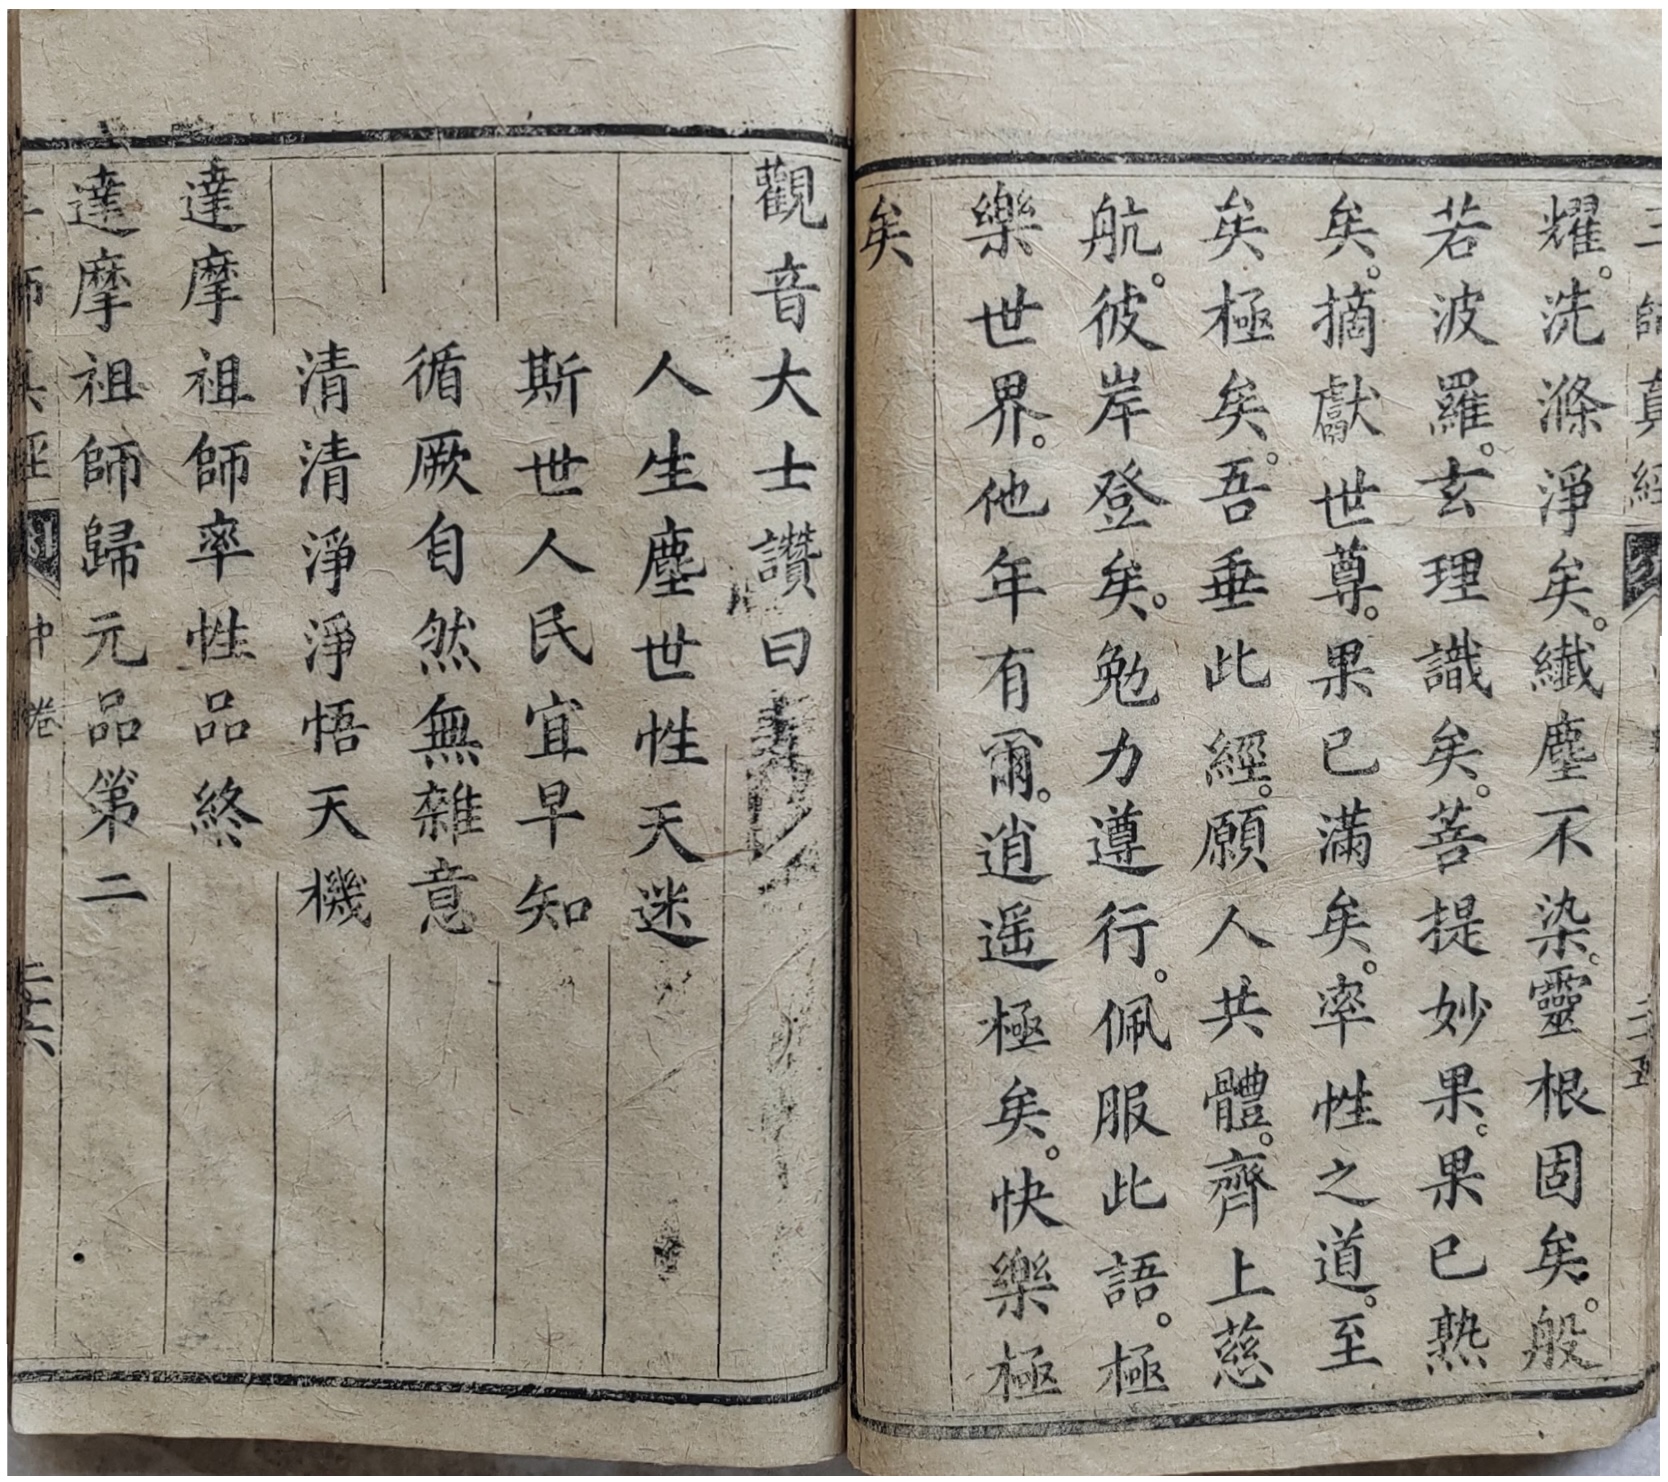 三師真經
耀。洗滌淨矣。纖塵不染。靈根固矣。般
若波羅。玄理識矣。菩提妙果。果已熟
矣。摘獻世尊。果已滿矣。率性之道。至
矣極矣。吾垂此經。願人共體。齊上慈
航。彼岸登矣。勉力遵行。佩服此語。極
樂世界。他年有爾。逍遥極矣。快樂極
矣
觀音大士讚曰
人生塵世性天迷
斯世人民宜早知
循厥自然無雜意
清清淨淨悟天機
達摩祖師率性品終
達摩祖師歸元品第二
三師真經 中卷 二十六